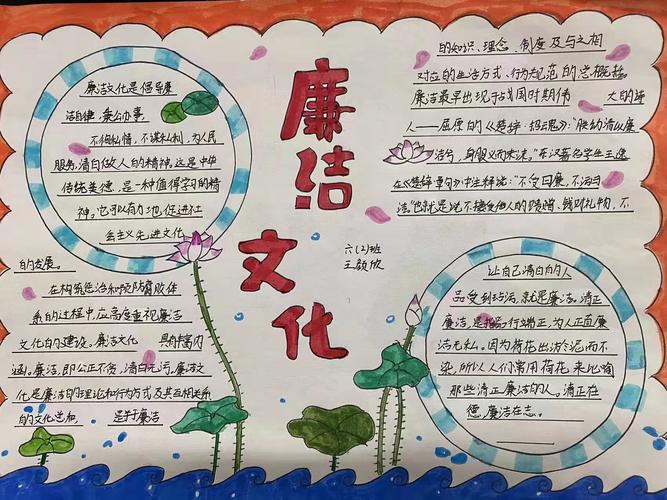 廉洁文化
六(2)班
王颢欣
廉洁文化是倡导廉
洁自律,秉公办事,
不徇私情,不谋私利,为人民
服务,清白做人的精神。这是中华
传统美德,是一种值得学习的精
神。它可以有力地促进社
会主义先进文化
的发展。
在构筑惩治和预防腐败体
系的过程中,应高度重视廉洁
文化的建设。廉洁文化 具有丰富内
涵。廉洁,即公正不贪,清白无污,廉洁文
化是廉洁的理论和行为方式及其互相关系
的文化总和, 是关于廉洁
的知识、理念、制度及与之相
对应的生活方式、行为规范的总概括。
廉洁最早出现于战国时期伟 大的诗
人——屈原的《楚辞·招魂》:"朕幼清以廉
洁兮,身服义而未沫。"东汉著名学生王逸
在《楚辞章句》中注释说:"不受曰廉,不污曰
洁。"也就是说不接受他人的馈赠、钱财礼物,不
让自己清白的人
品受到玷污,就是廉洁。清正
廉洁,是指品行端正,为人正直廉
洁无私。因为荷花出淤泥而不
染,所以人们常用荷花来比喻
那些清正廉洁的人。清正在
德,廉洁在志。